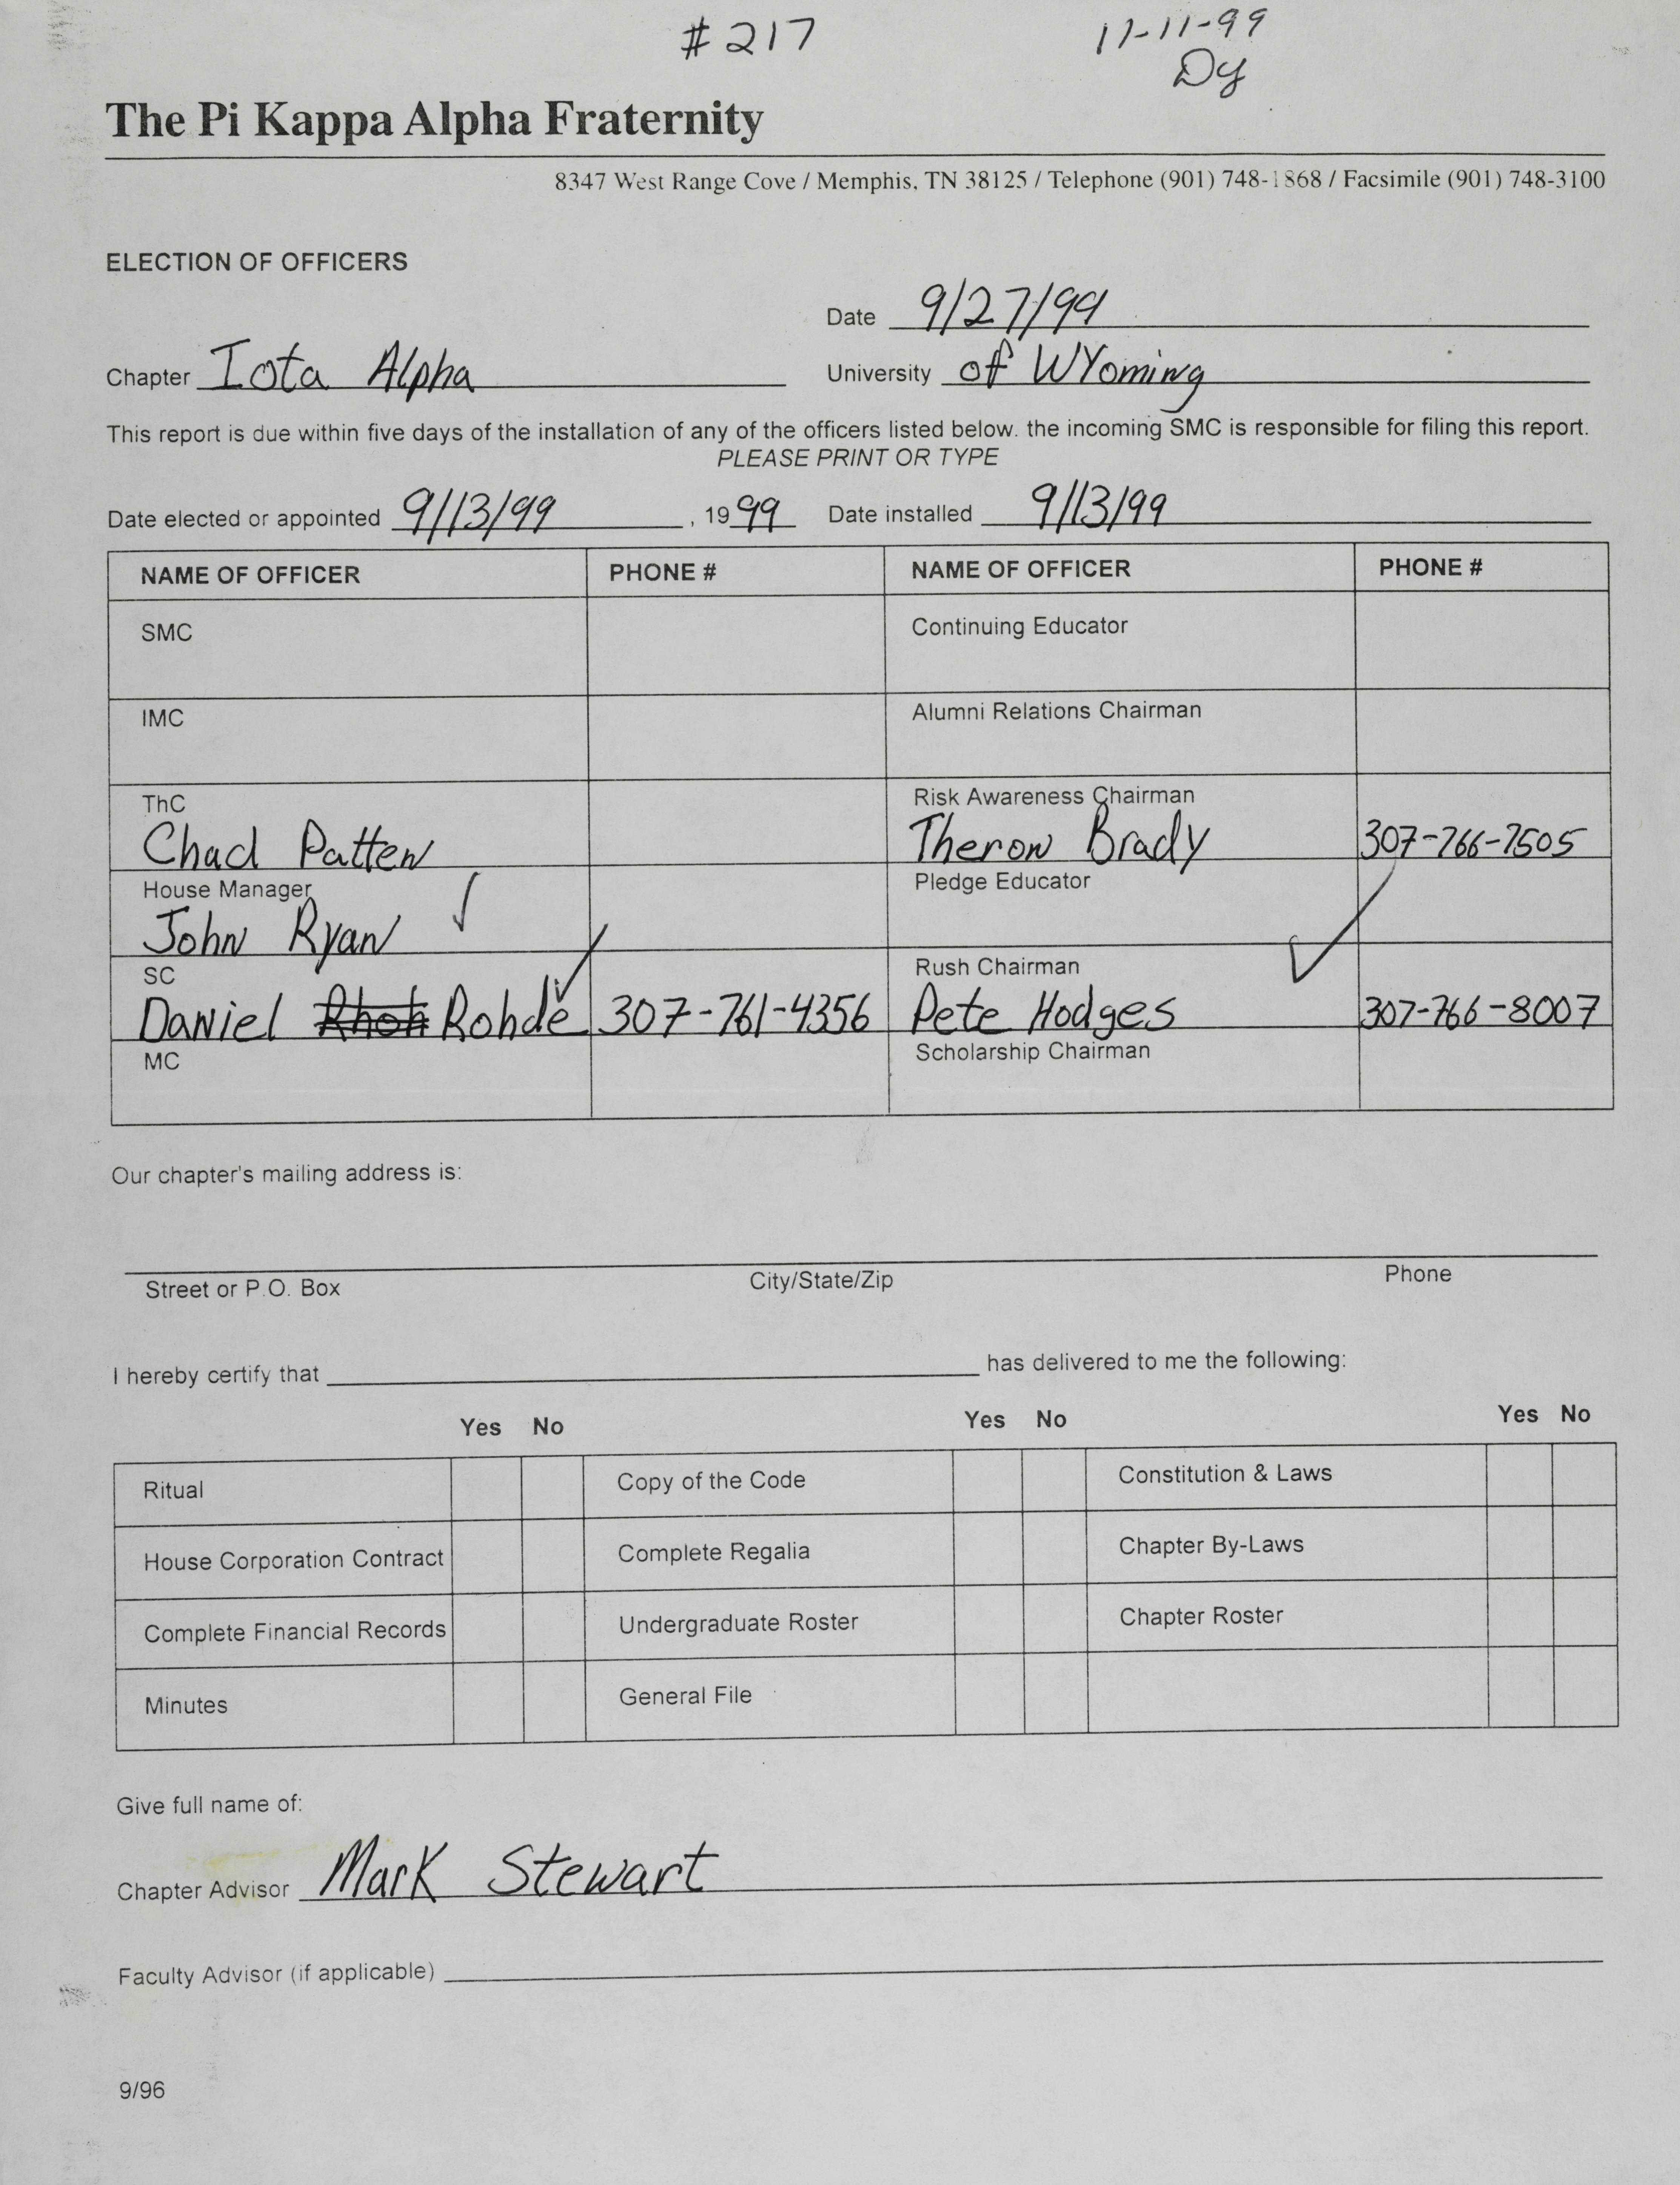 #217
11-11-99
Dy
The Pi Kappa Alpha Fraternity
8347 West Range Cove / Memphis, TN 38125 / Telephone (901) 748-1868 / Facsimile (901) 748-3100
ELECTION OF OFFICERS
Date 9/27/99
Chapter Iota Alpha University of WYoming
This report is due within five days of the installation of any of the officers listed below. the incoming SMC is responsible for filing this report.
PLEASE PRINT OR TYPE
Date elected or appointed 9/13/99 , 1999 Date installed 9/13/99
NAME OF OFFICER PHONE # NAME OF OFFICER PHONE #
SMC Continuing Educator
IMC Alumni Relations Chairman
ThC Risk Awareness Chairman
Chad Patten Theron Brady 307-766-7505
House Manager Pledge Educator
John Ryan
SC Rush Chairman
Daniel Rohde 307-761-4356 Pete Hodges 307-766-8007
MC Scholarship Chairman
Our chapter's mailing address is:
Street or P.O. Box City/State/Zip Phone
I hereby certify that has delivered to me the following:
Yes No Yes No Yes No
Ritual Copy of the Code Constitution & Laws
House Corporation Contract Complete Regalia Chapter By-Laws
Complete Financial Records Undergraduate Roster Chapter Roster
Minutes General File
Give full name of:
Chapter Advisor Mark Stewart
Faculty Advisor (if applicable)
9/96